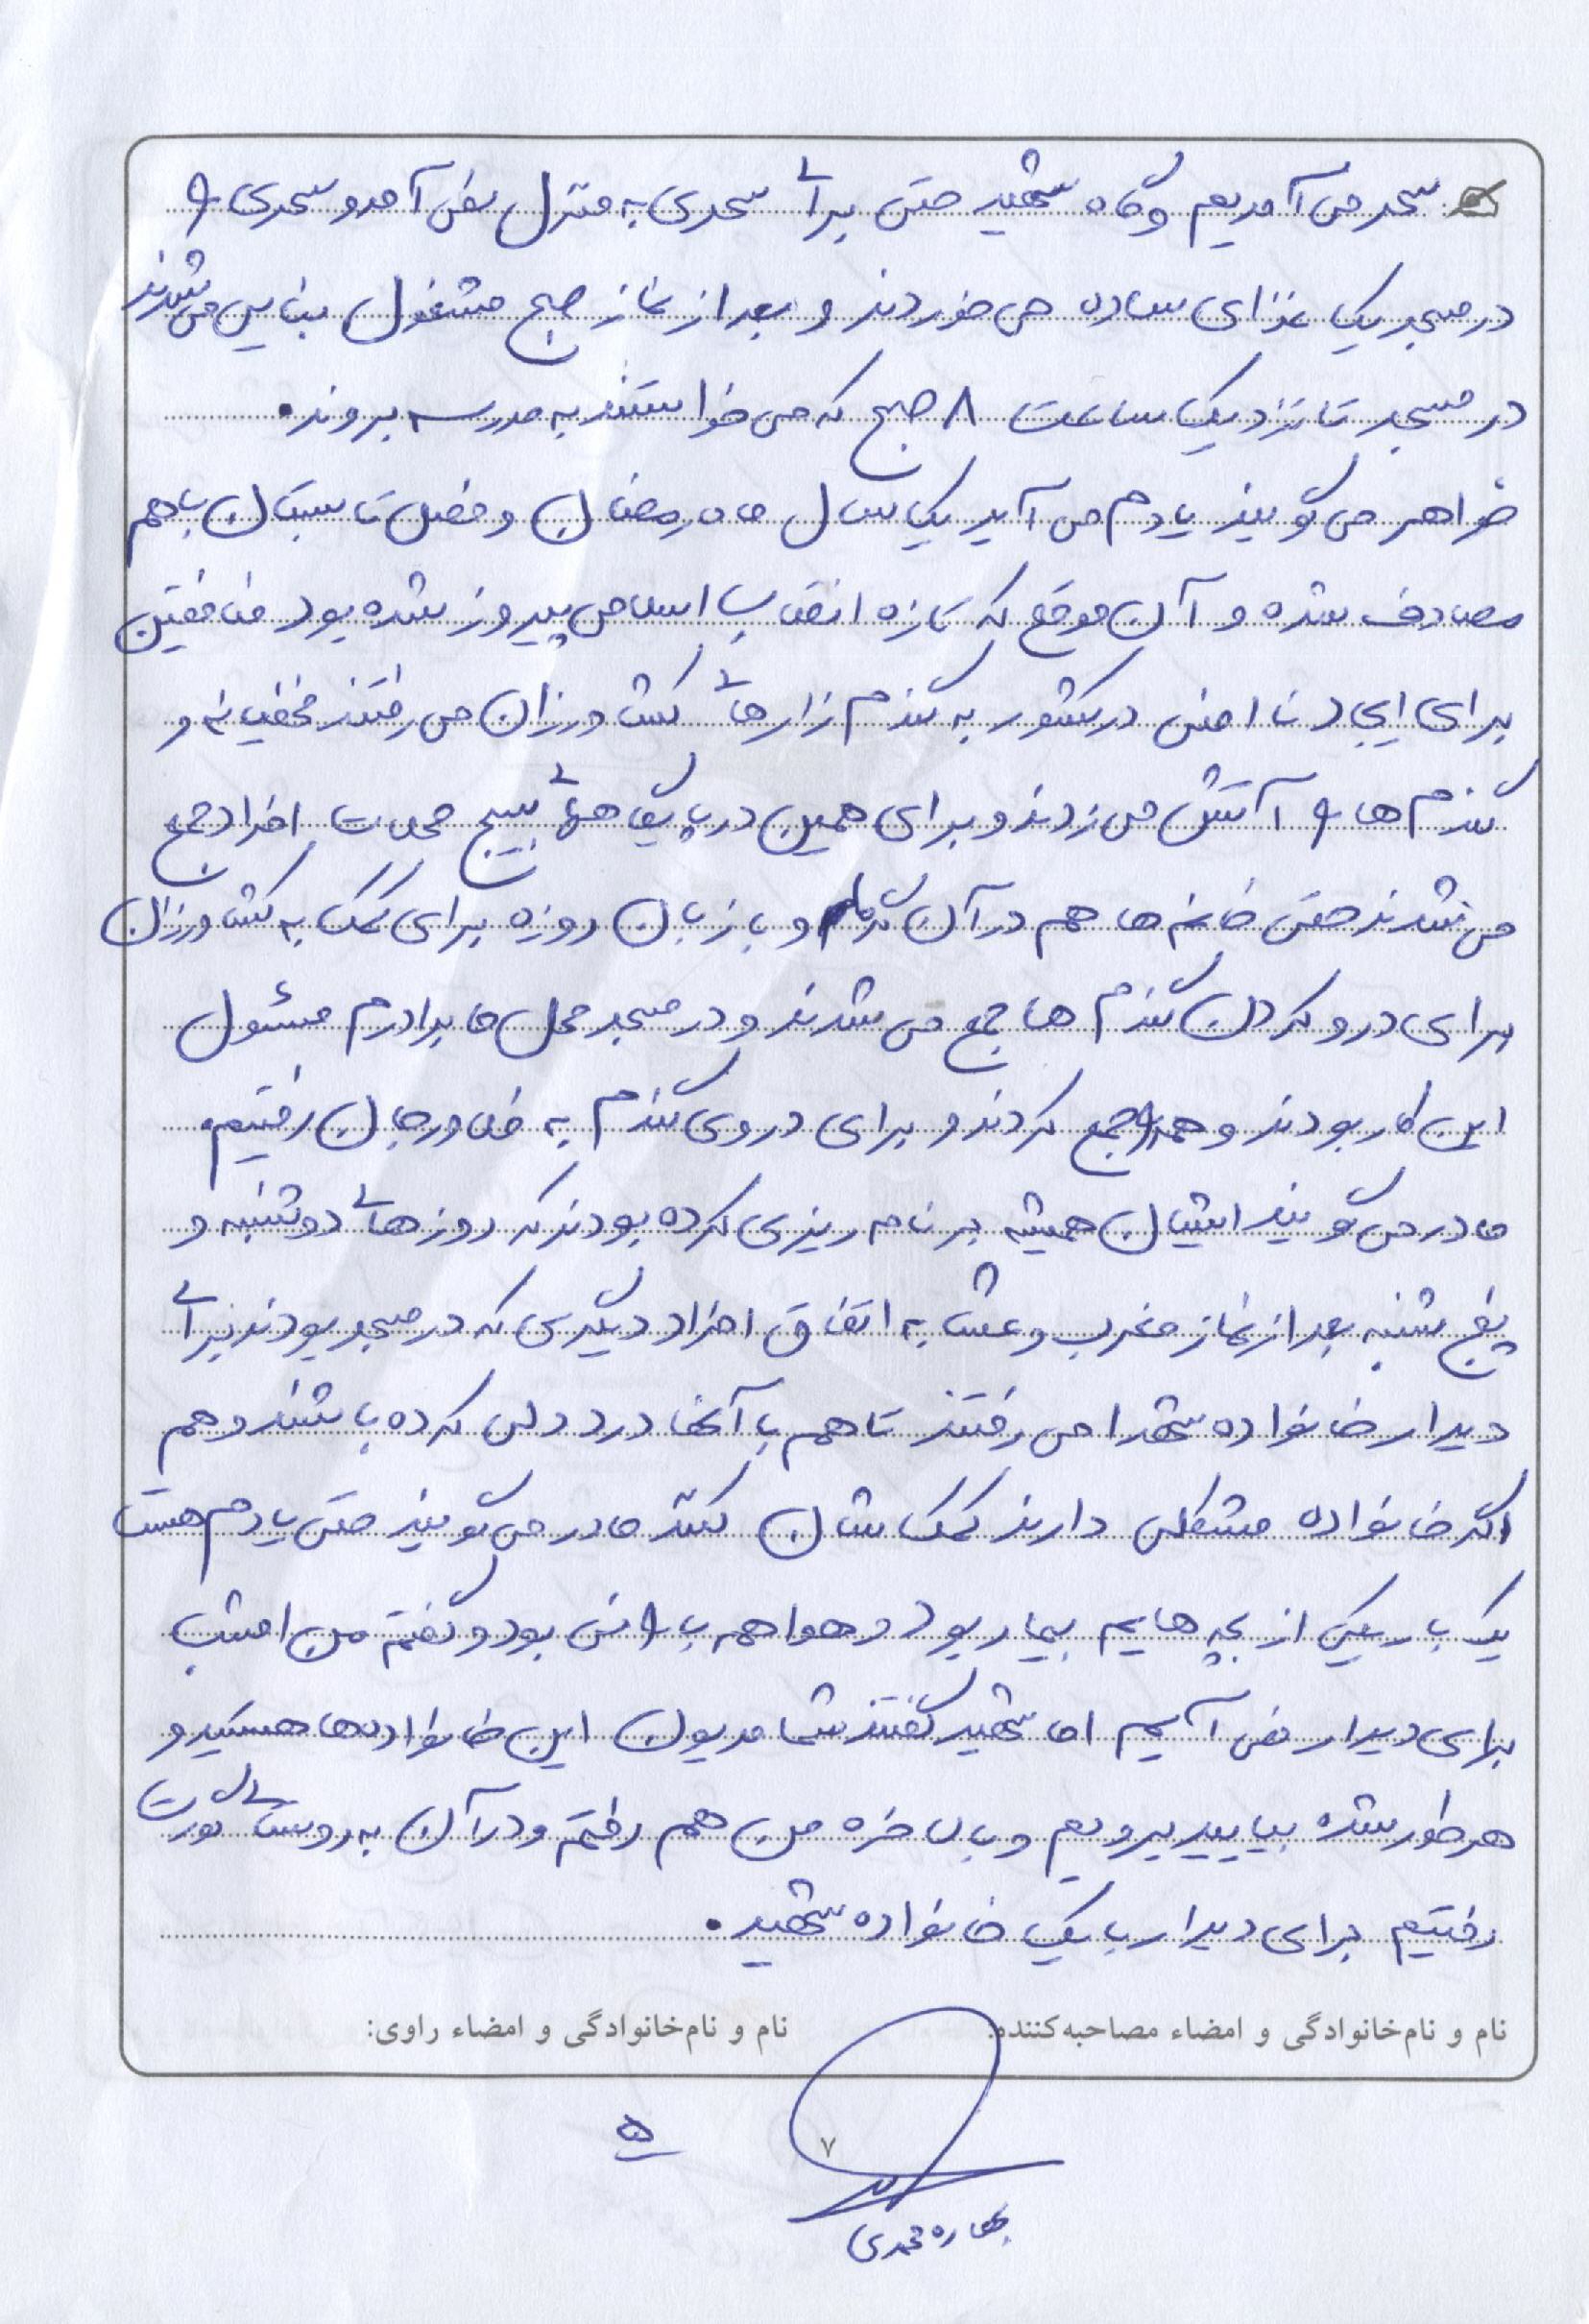 سحر می آمدیم و گاه شهید حتی برای سحری به منزل نمی آمد و سحری را
در مسجد یک غذای ساده می خوردند و بعد از نماز صبح مشغول بنایی می شدند
در مسجد تا نزدیک ساعت ۸ صبح که می خواستند به مدرسه بروند.
خواهر می گویند یادم می آید یک سال ماه رمضان و فصل تابستان با هم
مصادف شده و آن موقع که تازه انقلاب اسلامی پیروز شده بود منافقین
برای ایجاد ناامنی در کشور به گندم زارهای کشاورزان می رفتند مخفیانه و
گندم ها را آتش می زدند و برای همین در پایگاههای بسیج محلات افراد جمع
می شدند حتی خانم ها هم در آن گرما و با زبان روزه برای کمک به کشاورزان
برای درو کردن گندم ها جمع می شدند و در مسجد محل ما برادرم مسئول
این کار بودند و همه را جمع کردند و برای دروی گندم به خلاورجان رفتیم.
مادر می گویند ایشان همیشه برنامه ریزی کرده بودند که روزهای دوشنبه و
پنج شنبه بعد از نماز مغرب و عشا به اتفاق افراد دیگری که در مسجد بودند برای
دیدار خانواده شهدا می رفتند تا هم با آنها درد دلی کرده باشند و هم
اگر خانواده مشکلی دارند کمک شان کنند مادر می گویند حتی یادم هست
یک بار یکی از بچه هایم بیمار بود و هوا هم بارانی بود و گفتم من امشب
برای دیدار نمی آیم اما شهید گفتند شما مدیون این خانواده ها هستید و
هر طور شده بیایید برویم و بالاخره من هم رفتم و در آن به روستای گورت
رفتیم برای دیدار با یک خانواده شهید.
نام و نام‌خانوادگی و امضاء مصاحبه‌کننده: نام و نام‌خانوادگی و امضاء راوی:
۵
۷
بهاره محمدی